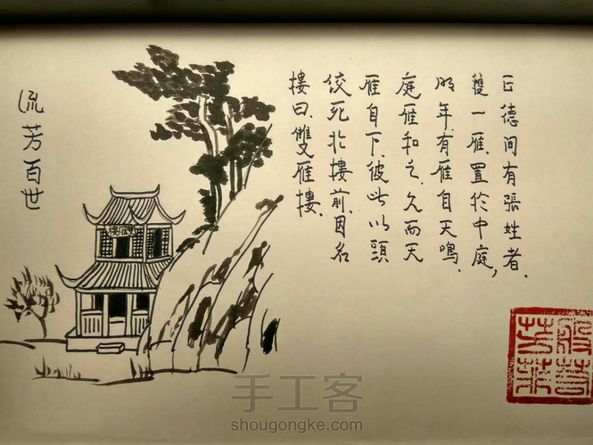 正德间有張姓者,
獲一雁置於中庭,
明年有雁自天鳴,
庭雁和之久而天
雁自下彼此以頭
绞死於樓前因名
樓曰雙雁樓.
流芳百世
手工客
shougongke.com